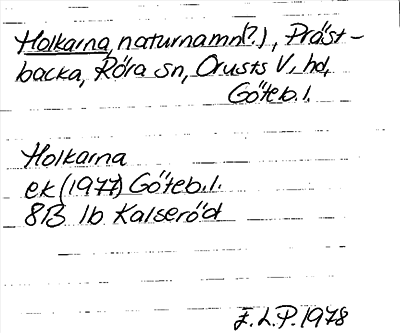 Holkarna, naturnamn(?), Präst-
backa, Röra sn, Orusts V. hd,
Göteb. l.
Holkarna
ek (1977) Göteb. l.
8B 1b Kalseröd
E.L.P. 1978